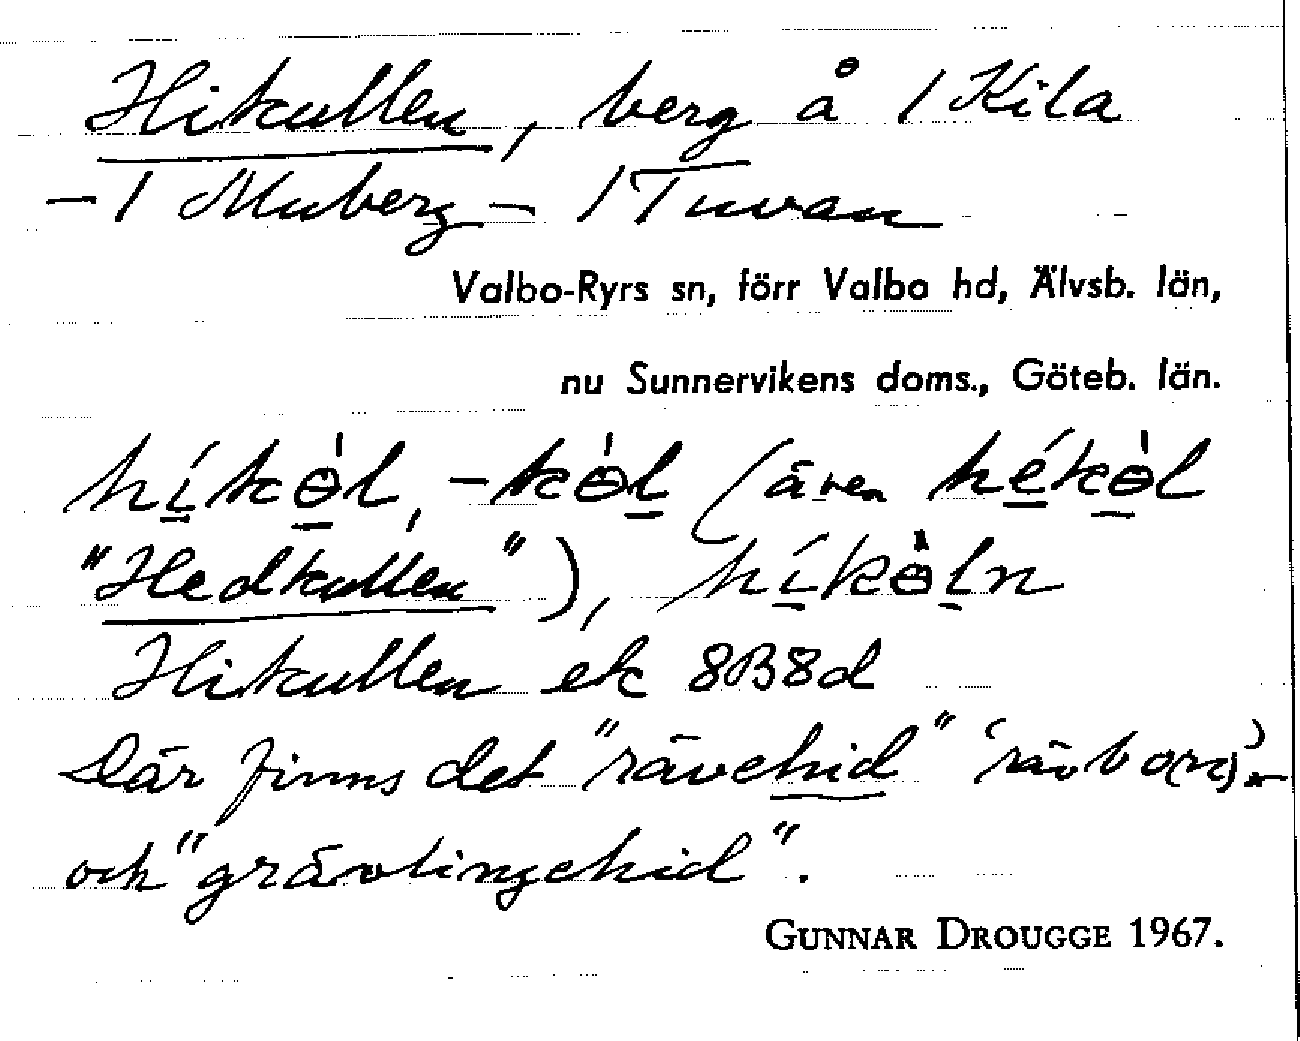 Hikullen, berg å 1 Kila
– 1 Muberg – 1 Tuvan
Valbo-Ryrs sn, förr Valbo hd, Älvsb. län,
nu Sunnervikens doms., Göteb. län.
híkɵ̀l, -kɵ̀l (även hékɵ̀l
"Hedkullen"), híkɵ̀ln
Hikullen ek 8B8d
Där finns det "rävehid" 'rävbo(n)'
och "grävlingehid".
GUNNAR DROUGGE 1967.